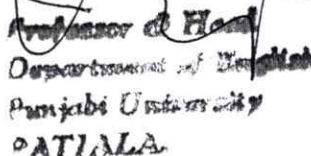 Professor & Head
Department of English
Punjabi University
PATIALA